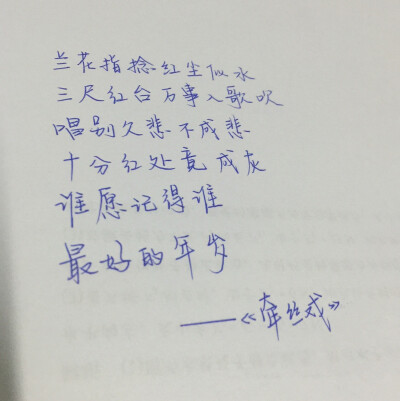 兰花指捻红尘似水
三尺红台万事入歌吹
唱别久悲不成悲
十分红处竟成灰
谁愿记得谁
最好的年岁
——《牵丝戏》